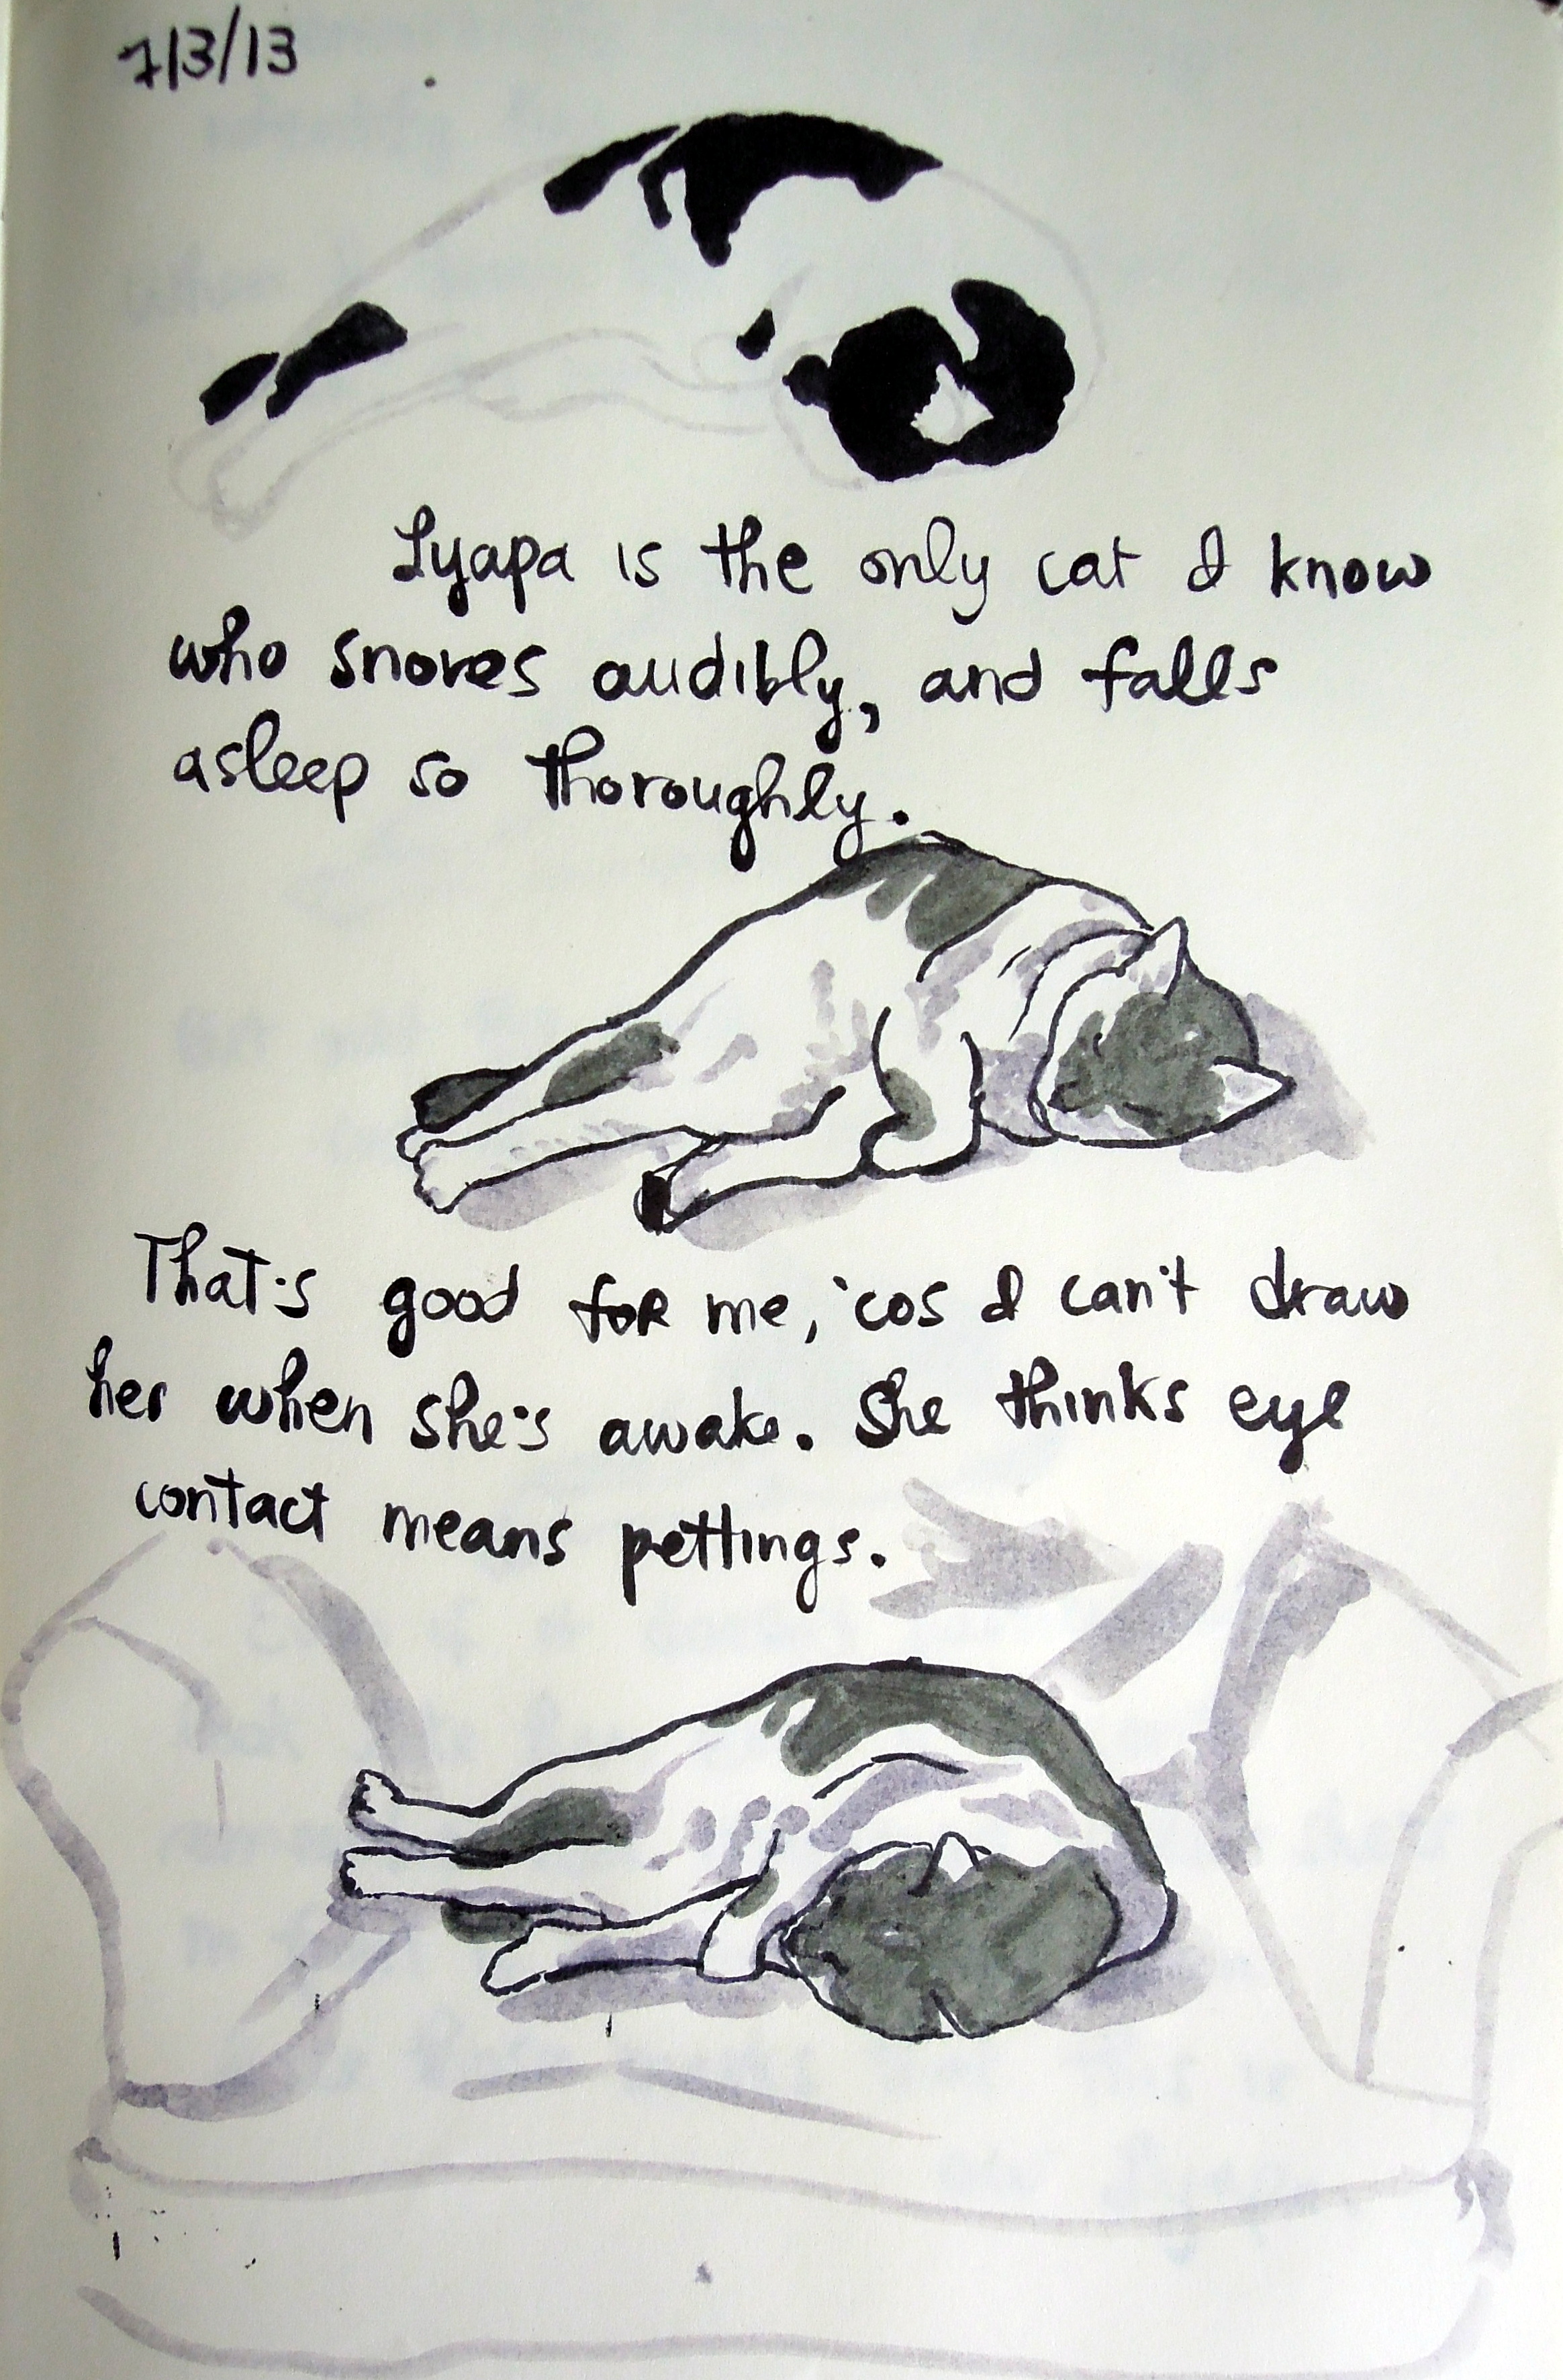 7/3/13
Lyapa is the only cat I know
who snores audibly, and falls
asleep so thoroughly.
That's good for me, 'cos I can't draw
her when she's awake. She thinks eye
contact means pettings.